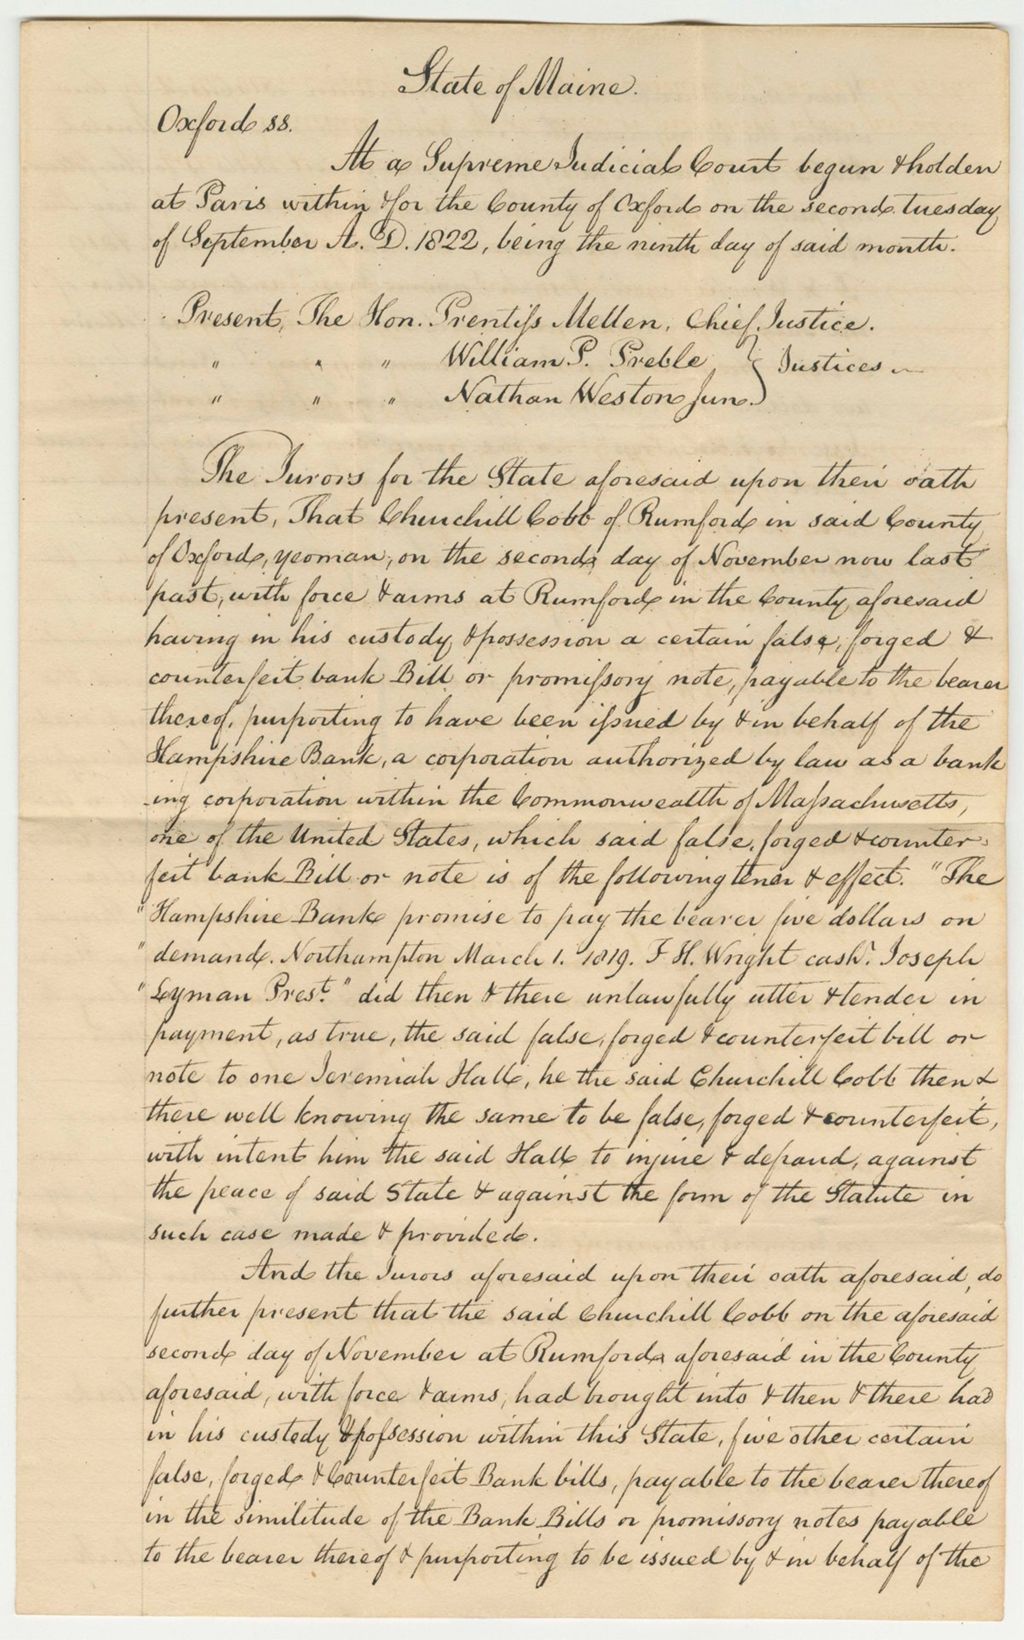 State of Maine.
Oxford ss.
At a Supreme Judicial Court begun & holden
at Paris within & for the County of Oxford on the second tuesday
of September A. D. 1822, being the ninth day of said month.
Present, The Hon. Prentiss Mellen, Chief Justice.
" " " William P. Preble } Justices
" " " Nathan Weston Jun.
The Jurors for the State aforesaid upon their oath
present, That Churchill Cobb of Rumford in said County
of Oxford, yeoman, on the second day of November now last
past, with force & arms at Rumford in the County aforesaid
having in his custody & possession a certain false, forged &
counterfeit bank Bill or promissory note, payable to the bearer
thereof, purporting to have been issued by & in behalf of the
Hampshire Bank, a corporation authorized by law as a bank
-ing corporation within the Commonwealth of Massachusetts,
one of the United States, which said false, forged & counter-
feit bank Bill or note is of the following tenor & effect. "The
"Hampshire Bank promise to pay the bearer five dollars on
"demand. Northampton March 1. 1819. F H. Wright cashr. Joseph
"Lyman Prest." did then & there unlawfully utter & tender in
payment, as true, the said false, forged & counterfeit bill or
note to one Jeremiah Hall, he the said Churchill Cobb then &
there well knowing the same to be false, forged & counterfeit,
with intent him the said Hall to injure & defraud, against
the peace of said State & against the form of the Statute in
such case made & provided.
And the Jurors aforesaid upon their oath aforesaid, do
further present that the said Churchill Cobb on the aforesaid
second day of November at Rumford aforesaid in the County
aforesaid, with force & arms, had brought into & then & there had
in his custody & possession within this State, five other certain
false, forged & Counterfeit Bank bills, payable to the bearer thereof
in the similitude of the Bank Bills or promissory notes payable
to the bearer thereof & purporting to be issued by & in behalf of the